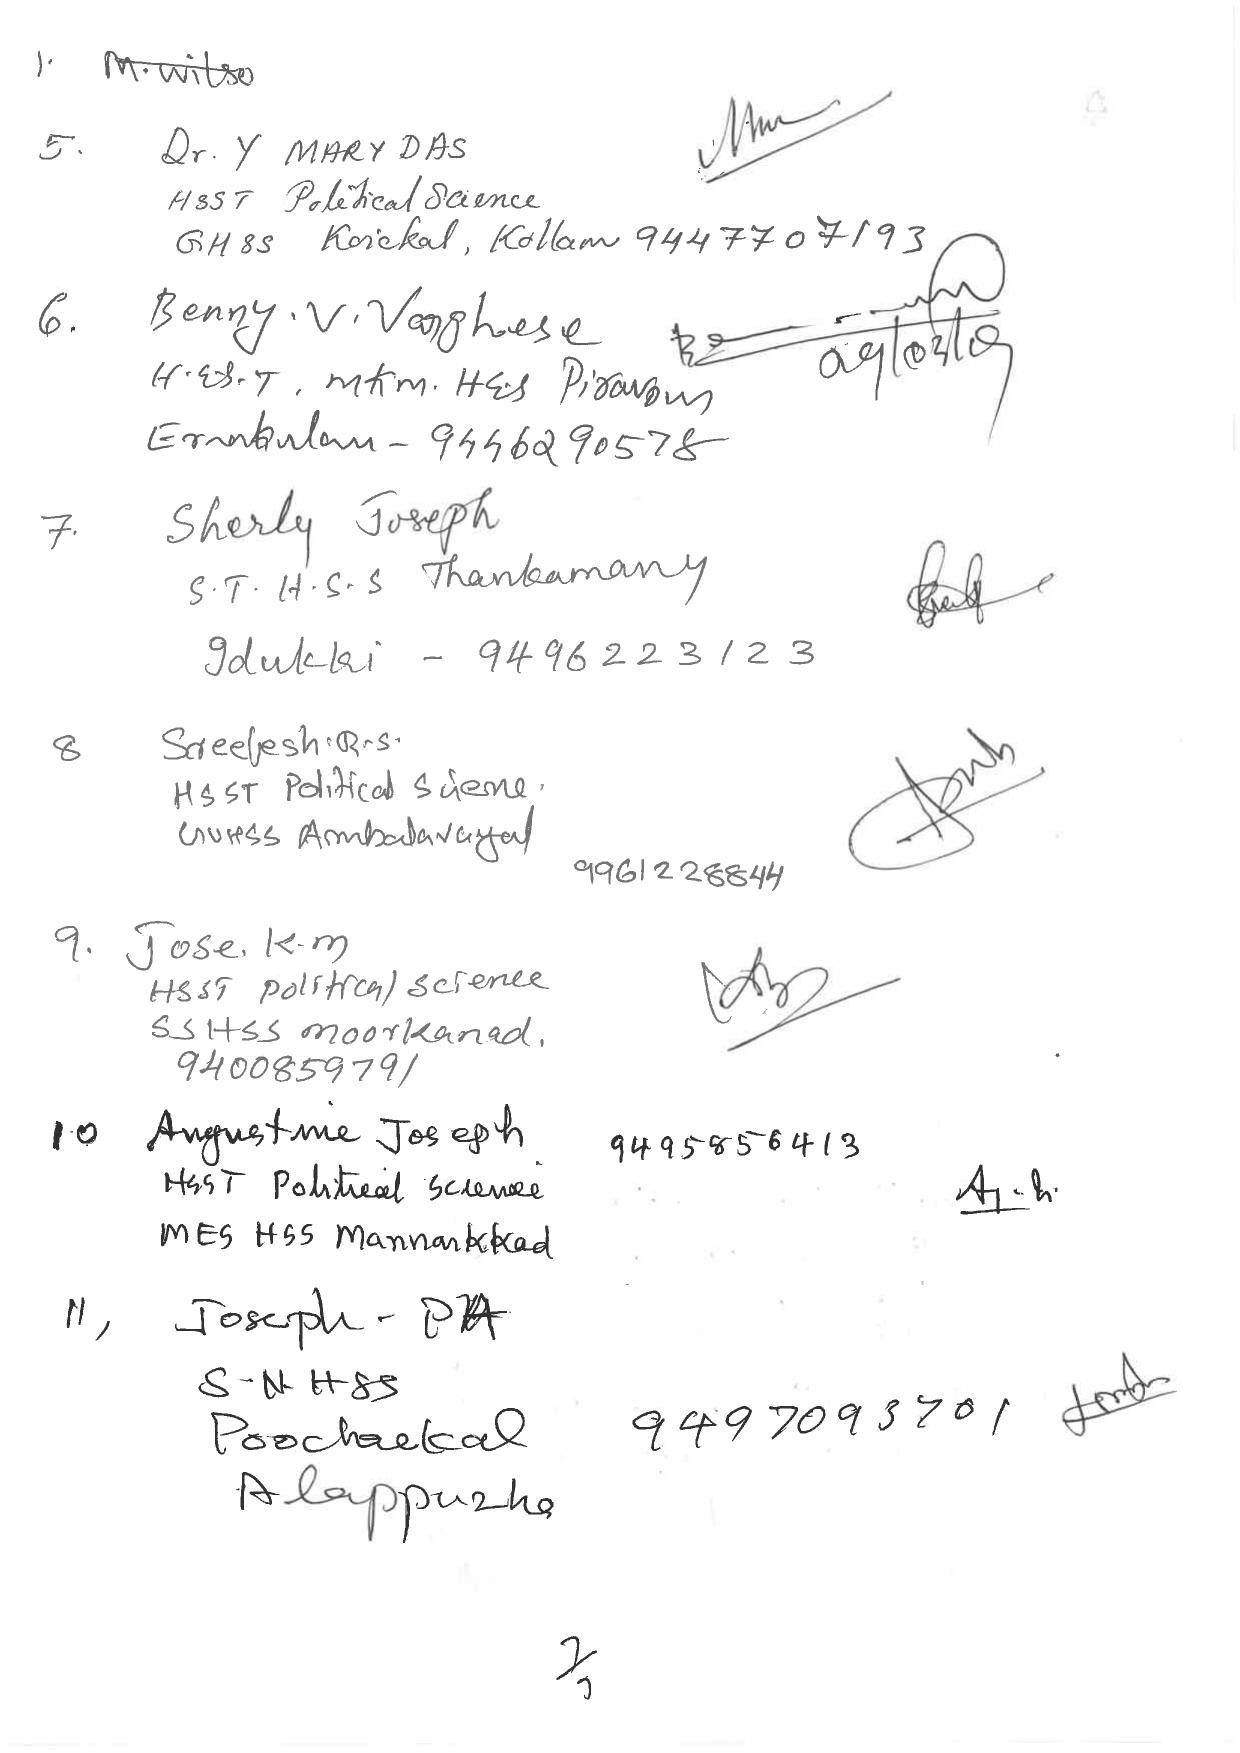 1. M. Witso
5. Dr. Y MARY DAS
HSST Political Science
GHSS Koickal, Kollam 9447707193
6. Benny. V. Varghese
H.S.S.T, MKM. HSS Piravom
Ernakulam - 9446290578
7. Sherly Joseph
S.T. H.S.S Thankamany
Idukki - 9496223123
8 Sreejesh. R.S.
HSST Political Science.
GVHSS Ambalavayal
9961228844
9. Jose. K.M
HSST Political Science
SSHSS Moorkanad,
9400859791
10 Augustine Joseph 9495856413
HSST Political Science
MES HSS Mannarkkad
11, Joseph - PA
S-N-HSS
Poochackal 9497093701
Alappuzha